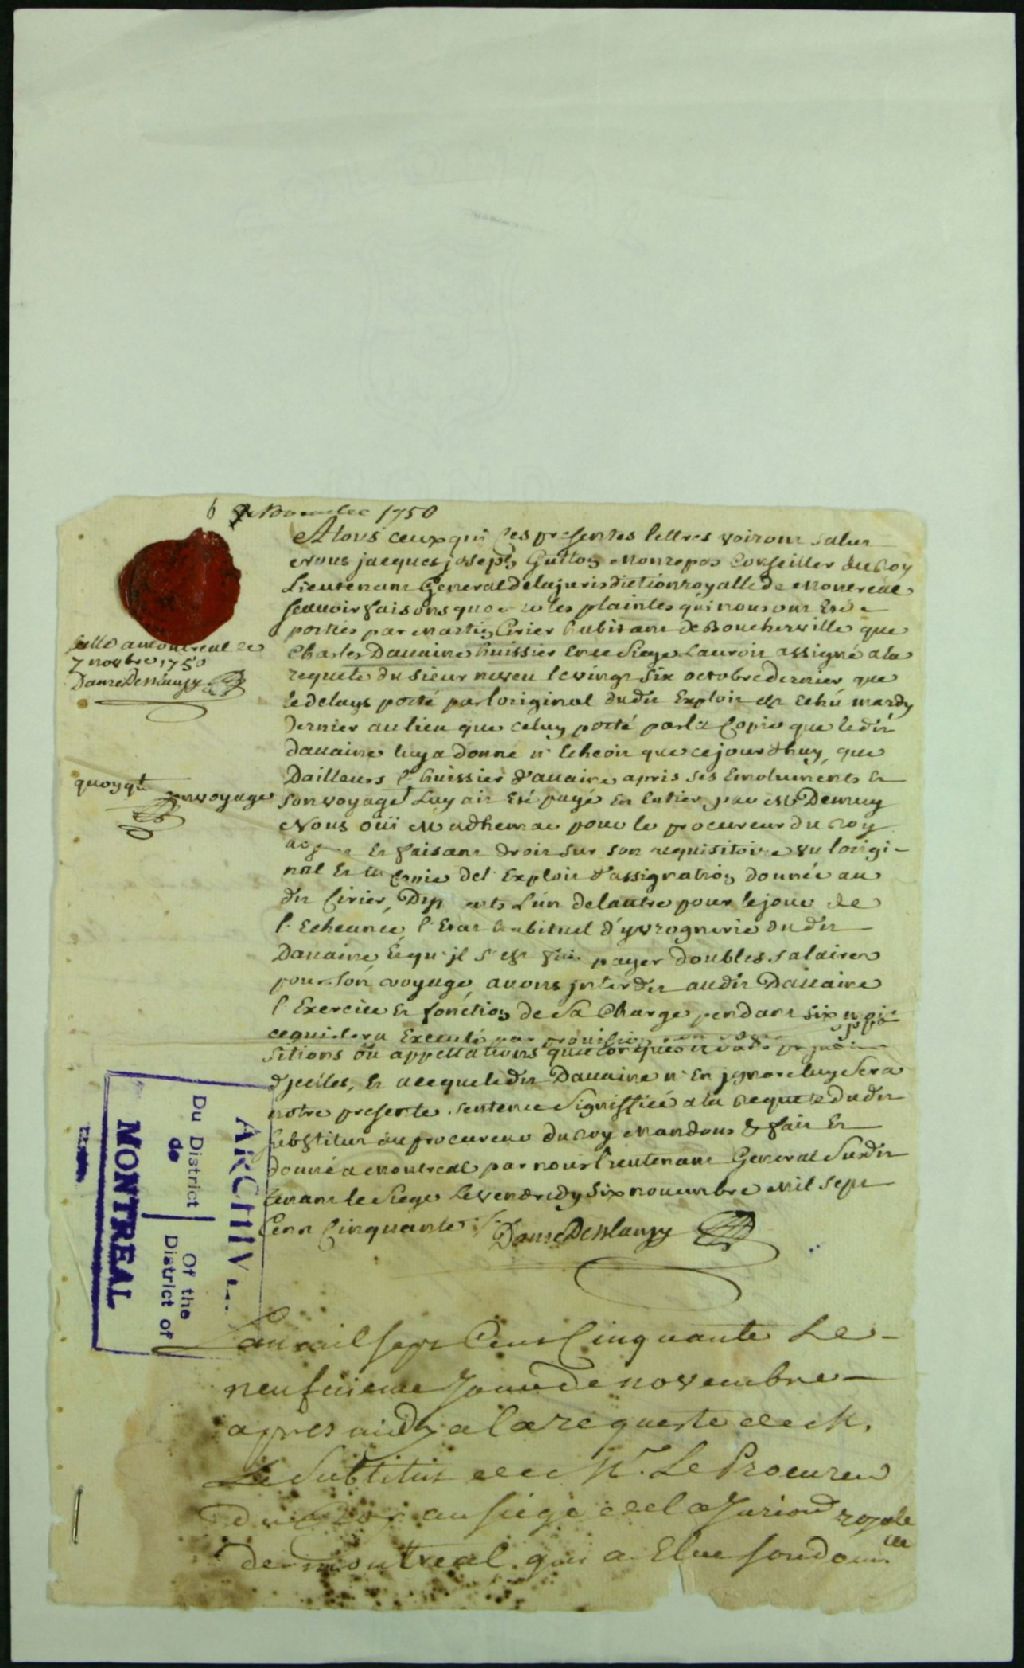 6 Novembre 1750
A tous ceux qui ces presentes lettres voiront salut
Nous jacques joseph Guiton Monrepos Conseiller du Roy
Lieutenant General de la jurisdiction royalle de Montreal
scavoir faisons que sur les plaintes qui nous ont Eté
portées par Martin Cirier habitant de Boucherville que
Charles Dauaine huissier En ce siege Lauroit assigné a la
requete du sieur neveu le vingt six octobre dernier que
le delays porté par loriginal dudit Exploit est Echü mardy
dernier au lieu que celuy porté par la Copie que ledit
Dauaine luy a donné n'Echeoit que ce jourdhuy, que
Dailleurs l'huissier d'auaine apris ses Emoluments et
son voyage Luy ait Eté payé En Entier par Mr Demuy
Nous oüi M adhemar pour le procureur du Roy
Et faisant droit sur son requisitoire vu lorigi-
nal Et la Copie del Exploit d'assignation donnée au
dit Cirier, Differents Lun delautre pour lejour de
l'Echeance, l'Etat habituel d'yvrognerie dudit
Dauaine Et qu'jl s'est fait payer doubles salaires
pour son voyage, avons jnterdit audit Dauaine
l'Exercice Et fonction de sa Charge pendant six mois
cequi sera Executé par provision oppo
sitions ou appellations quelconques
d'jcelles, Et aceque ledit Dauaine n'En jgnore luy sera
notre presente sentence Signiffiée a la Requete dudit
substitut du procureur du Roy Mandons &c fait Et
donné a Montreal par nous lieutenant General susdit
tenant le Siege le vendredy six novembre Mil sept
Cent Cinquante
Danre De Blanzy
scellé a montreal ce
7 novbre 1750
Danre De Blanzy
quoyqt
son voyage
ARCHIV
Du District
de
Of the
District of
MONTREAL
Lan mil sept Cent Cinquante Le
neufvieme Jour de novembre
apres midy a la requeste de M.
Le Subtitut de Mr. Le Procureur
du Roy au siege de la Jurisdon royale
de montreal qui a Elue son dom